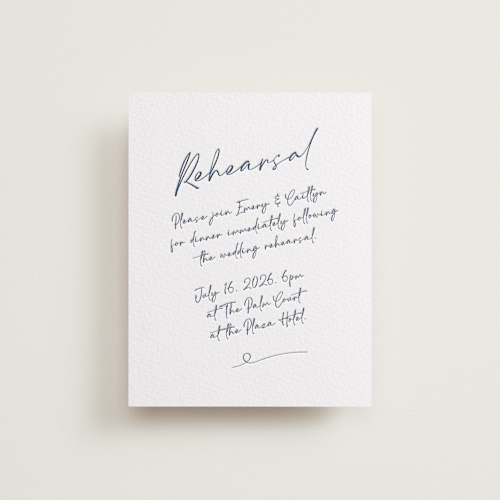 Rehearsal
Please join Emery & Caitlyn
for dinner immediately following
the wedding rehearsal.
July 16, 2026, 6pm
at The Palm Court
at the Plaza Hotel.